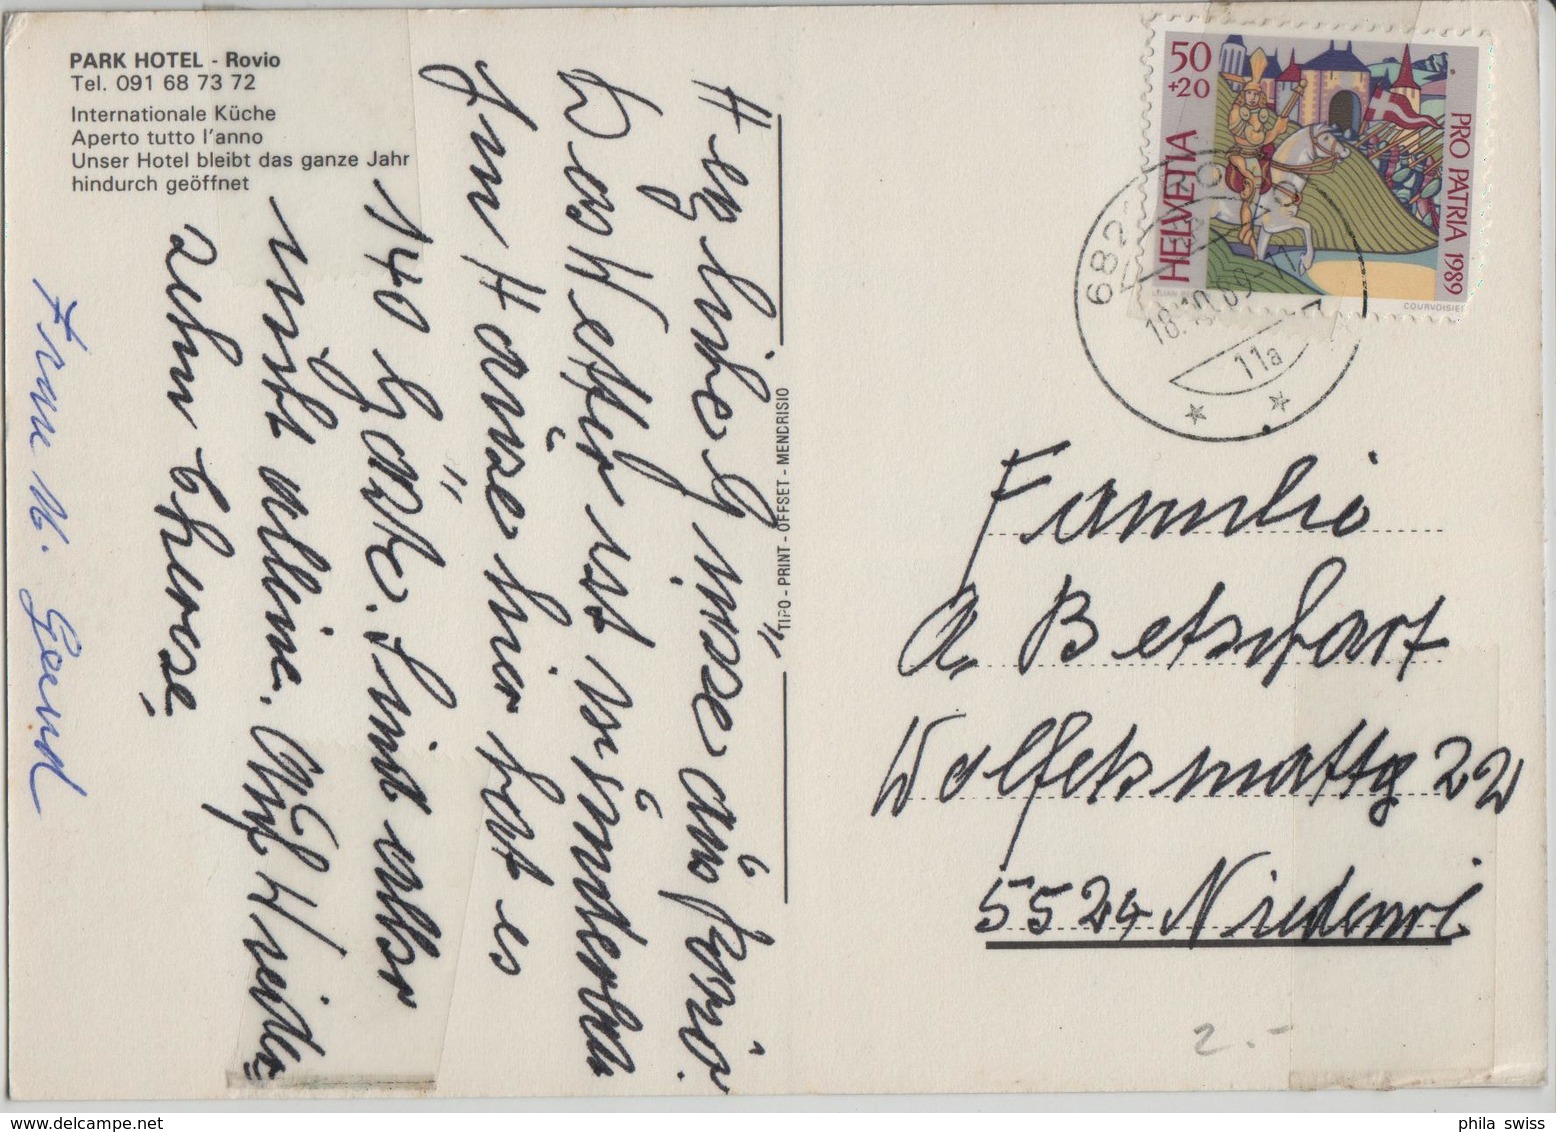 PARK HOTEL - Rovio
Tel. 091 68 73 72
Internationale Küche
Aperto tutto l'anno
Unser Hotel bleibt das ganze Jahr
hindurch geöffnet
Herzliche Grüsse aus Rovio.
Das Wetter ist wunderbar
Im Hause hier hat es
140 Gäste. Sind also
nicht alleine. Auf Wieder
sehn Therese
Frau M. Gend
TIPO - PRINT - OFFSET - MENDRISIO
50
+20
HELVETIA
PRO PATRIA 1989
COURVOISIER
682
18.10.89
11a
Familie
A. Betschart
Wolfeksmattg 22
5524 Niederwil
2.-
phila swiss